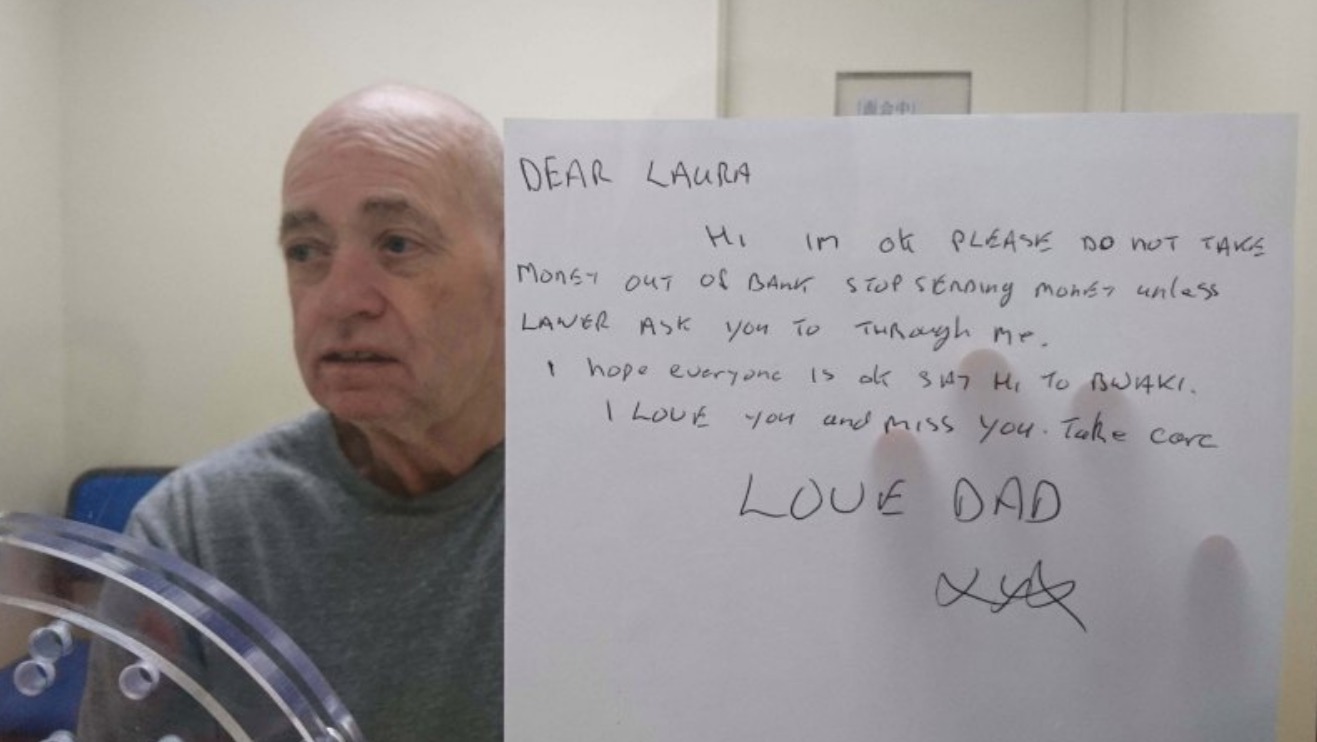 面会中
DEAR LAURA
Hi im ok PLEASE DO NOT TAKE
MONEY OUT OF BANK STOP SENDING MONEY unless
LAWER ASK YOU TO THROUGH Me.
I hope everyone is ok SAY Hi To BWAKI.
I LOVE you and miss you. Take care
LOVE DAD
xxx